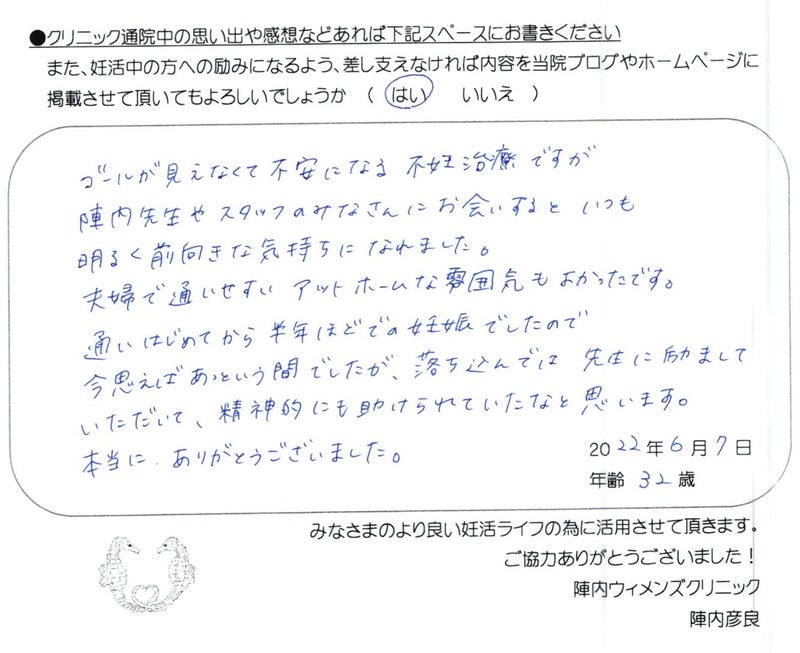 ●クリニック通院中の思い出や感想などあれば下記スペースにお書きください
また、妊活中の方への励みになるよう、差し支えなければ内容を当院ブログやホームページに
掲載させて頂いてもよろしいでしょうか （ はい いいえ ）
ゴールが見えなくて不安になる不妊治療ですが
陣内先生やスタッフのみなさんにお会いするといつも
明るく前向きな気持ちになれました。
夫婦で通いやすいアットホームな雰囲気もよかったです。
通いはじめてから半年ほどでの妊娠でしたので
今思えばあっという間でしたが、落ち込んでは先生に励まして
いただいて、精神的にも助けられていたなと思います。
本当に、ありがとうございました。
2022年6月7日
年齢 32歳
みなさまのより良い妊活ライフの為に活用させて頂きます。
ご協力ありがとうございました！
陣内ウィメンズクリニック
陣内彦良